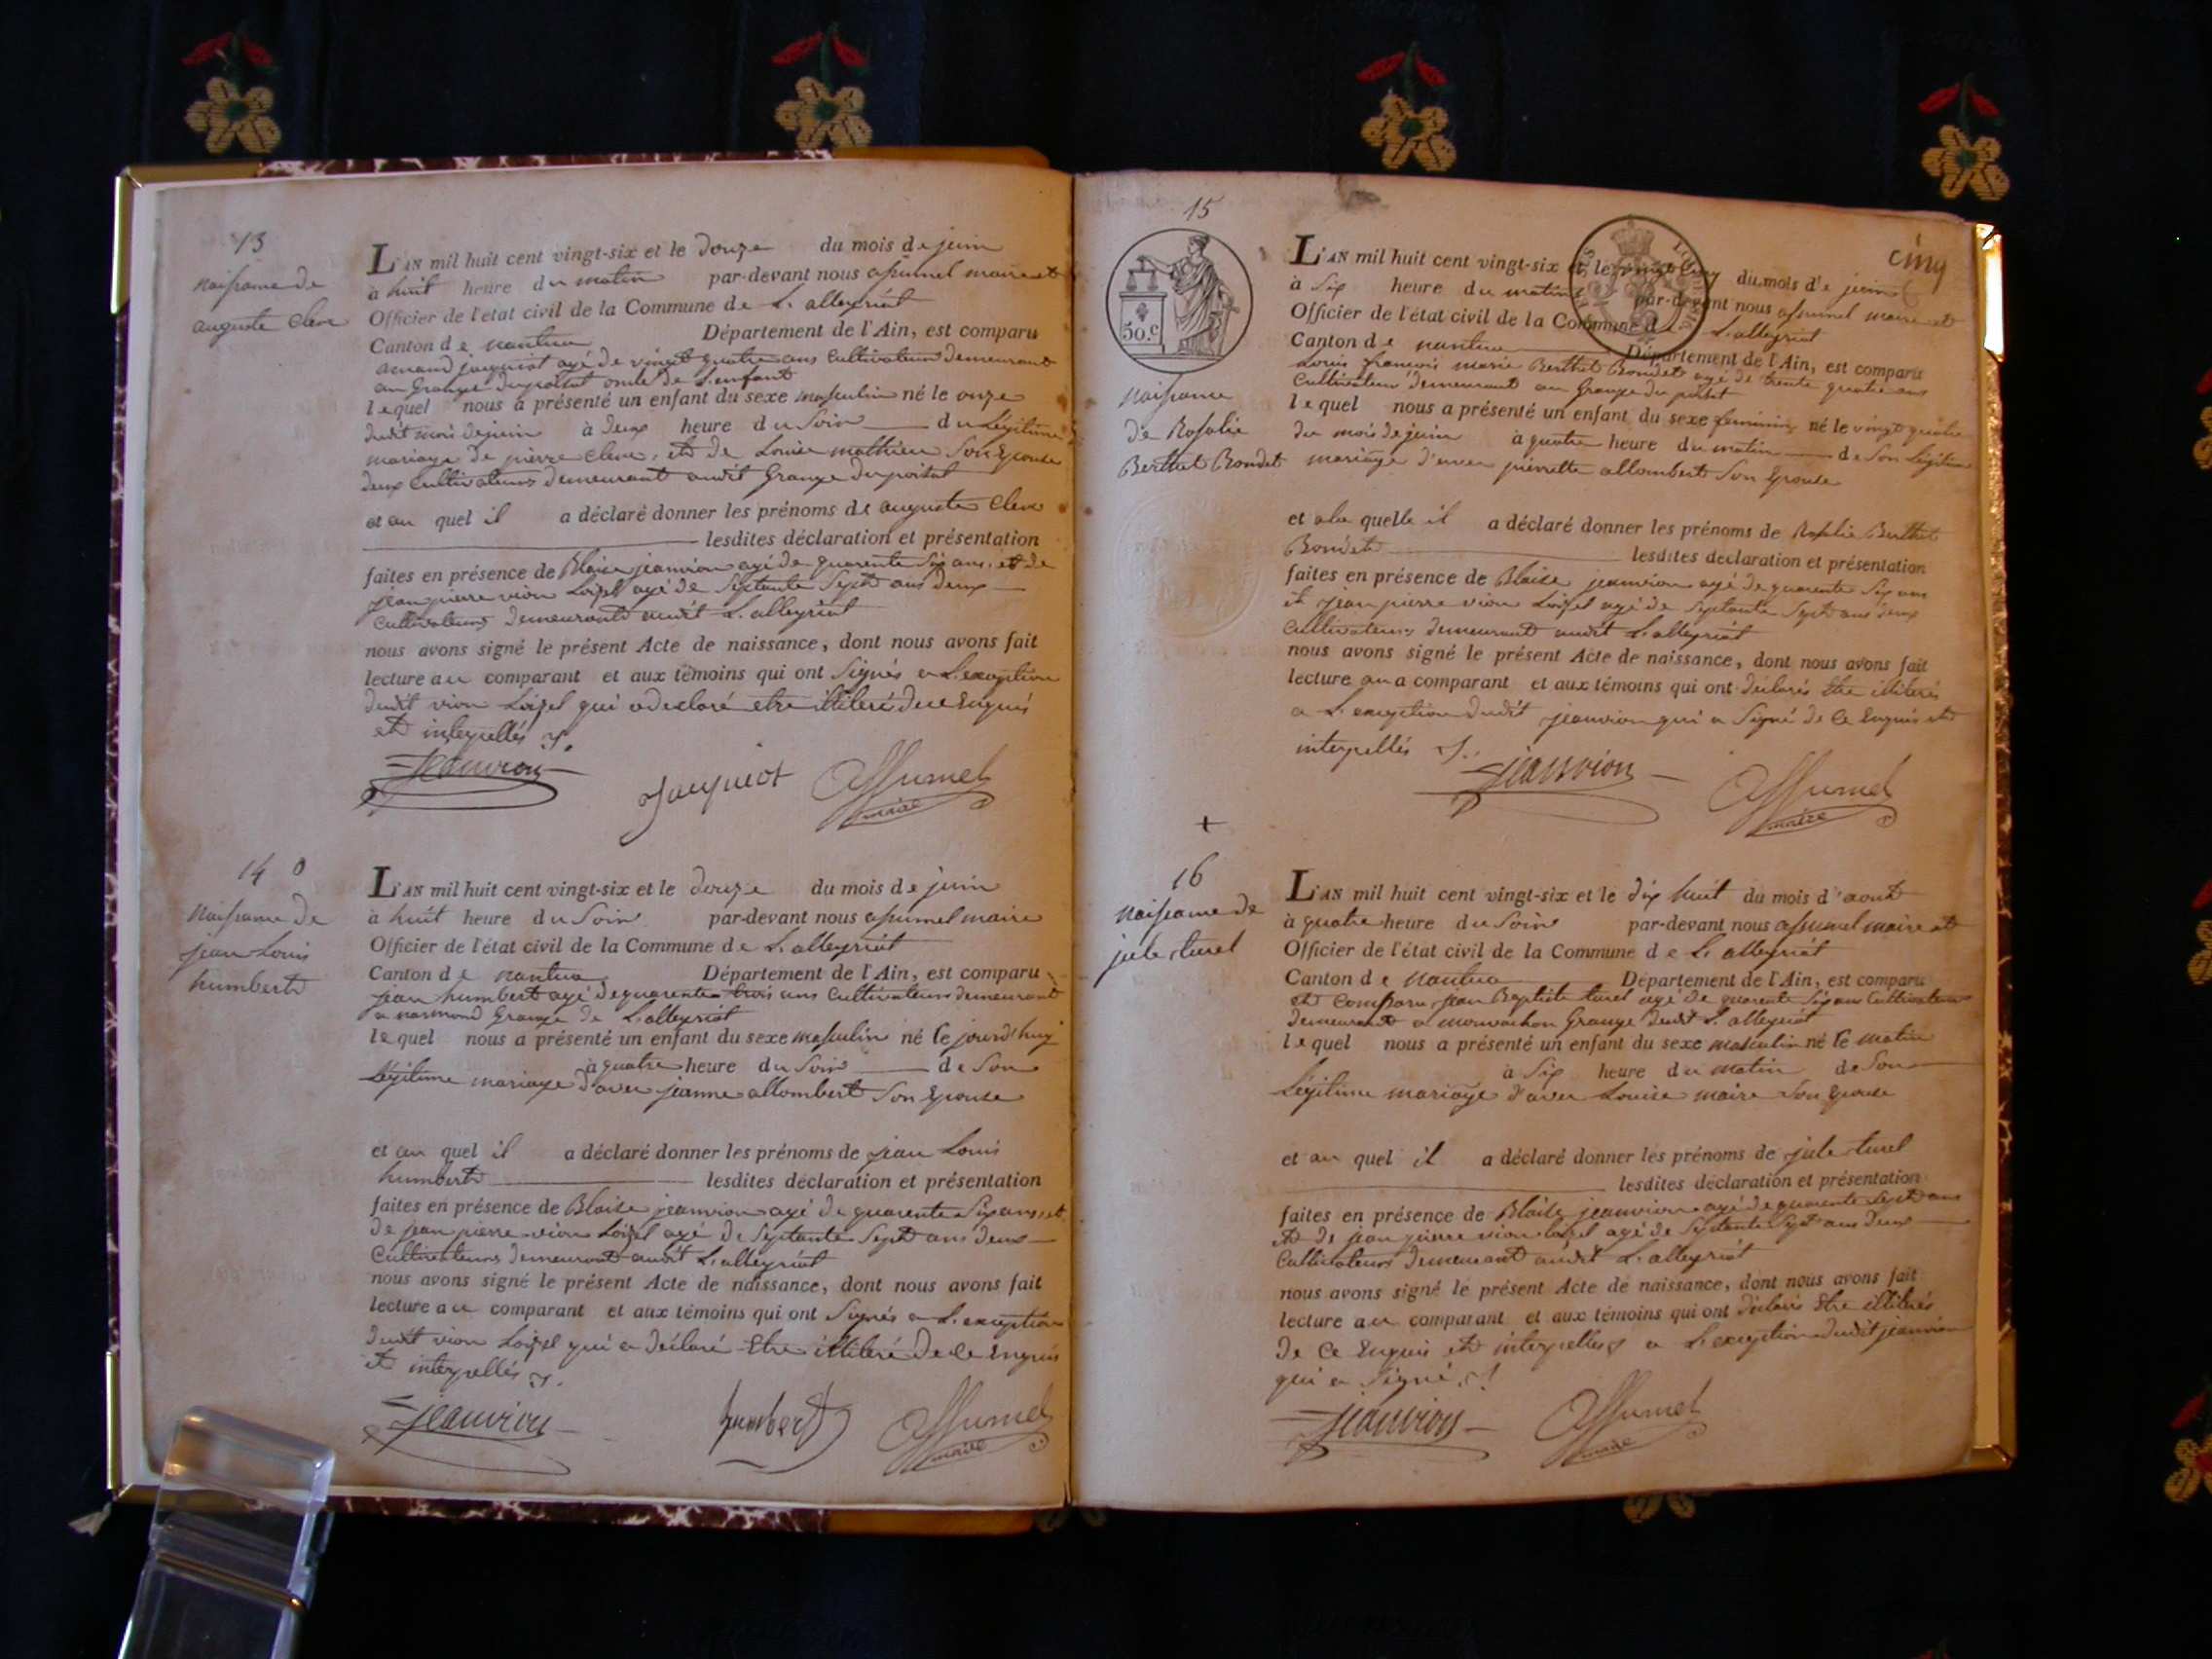 13
naissance de
auguste Clerc
L'AN mil huit cent vingt-six et le douze du mois de juin
à huit heure du matin par-devant nous assumel maire et
Officier de l'état civil de la Commune de L. alleyriat
Canton de nantua Département de l'Ain, est comparu
jacquiot agé de vingt quatre ans Cultivateur demeurant
au Grange du poisat oncle de L'enfant
lequel nous a présenté un enfant du sexe masculin né le onze
dudit mois de juin à deux heure du Soir du Légitime
mariage de pierre Clerc, et de Louise mathieu Son Epouse
deux Cultivateurs demeurant audit Grange du poisat
et au quel il a déclaré donner les prénoms de auguste Clerc
lesdites déclaration et présentation
faites en présence de Blaise jeanvion agé de quarente Six ans, et de
jean pierre vion Loisel agé de Septante Sept ans deux
Cultivateurs demeurant audit L. alleyriat
nous avons signé le présent Acte de naissance, dont nous avons fait
lecture au comparant et aux témoins qui ont Signés a L'exception
dudit vion Loisel qui a declaré etre illiteré de ce Enquis
et interpellés
jeanvion
Jacquiot
Assumel
maire
14 0
naissance de
jean Louis
humbert
L'AN mil huit cent vingt-six et le douze du mois de juin
à huit heure du Soir par-devant nous assumel maire
Officier de l'état civil de la Commune de L. alleyriat
Canton de nantua Département de l'Ain, est comparu
jean humbert agé de quarente trois ans Cultivateur demeurant
a Grange de L. alleyriat
lequel nous a présenté un enfant du sexe masculin né Ce jourd'huy
à quatre heure du Soir de Son
Légitime mariage d'avec jeanne allombert Son Epouse
et au quel il a déclaré donner les prénoms de jean Louis
humbert lesdites déclaration et présentation
faites en présence de Blaise jeanvion agé de quarente Six ans, et
de jean pierre vion Loisel agé de Septante Sept ans deux
Cultivateurs demeurant audit L. alleyriat
nous avons signé le présent Acte de naissance, dont nous avons fait
lecture au comparant et aux témoins qui ont Signés a L'exception
dudit vion Loisel qui a déclaré Etre illiteré de ce Enquis
et interpellés
jeanvion
humbert
Assumel
maire
15
50.c
cinq
naissance
de Rosalie
Berthet Bondet
L'AN mil huit cent vingt-six et le vingt cinq du mois de juin
à Six heure du matin par-devant nous assumel maire et
Officier de l'état civil de la Commune de L. alleyriat
Canton de nantua Département de l'Ain, est comparu
Louis françois marie Berthet Bondet agé de trente quatre ans
Cultivateur demeurant au Grange du poisat
lequel nous a présenté un enfant du sexe feminin né le vingt quatre
du mois de juin à quatre heure du matin de Son Légitime
mariage d'avec pierrette allombert Son Epouse
et a la quelle il a déclaré donner les prénoms de Rosalie Berthet
Bondet lesdites declaration et présentation
faites en présence de Blaise jeanvion agé de quarente Six ans
et jean pierre vion Loisel agé de Septante Sept ans deux
Cultivateurs demeurant audit L. alleyriat
nous avons signé le présent Acte de naissance, dont nous avons fait
lecture au comparant et aux témoins qui ont déclarés Etre illiterés
a L'exception dudit jeanvion qui a Signé de Ce Enquis et
interpellés
jeanvion
Assumel
maire
+
16
naissance de
jule turel
L'AN mil huit cent vingt-six et le dix huit du mois d'aout
à quatre heure du Soir par-devant nous assumel maire et
Officier de l'état civil de la Commune de L. alleyriat
Canton de Nantua Département de l'Ain, est comparu
et Comparu jean Baptiste turel agé de quarente Six ans Cultivateur
demeurant a Grange dudit L. alleyriat
lequel nous a présenté un enfant du sexe masculin né Ce matin
à Six heure du matin de Son
Légitime mariage d'avec Louise maire Son Epouse
et au quel il a déclaré donner les prénoms de jule turel
lesdites déclaration et présentation
faites en présence de Blaise jeanvion agé de quarente Sept ans
et de jean pierre vion Loisel agé de Septante Sept ans deux
Cultivateurs demeurant audit L. alleyriat
nous avons signé le présent Acte de naissance, dont nous avons fait
lecture au comparant et aux témoins qui ont déclarés Etre illiterés
de Ce Enquis et interpellés a L'exception dudit jeanvion
qui a Signé
jeanvion
Assumel
maire